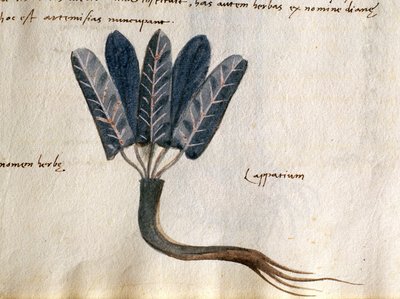 has autem herbas ex nomine dianę
hoc est artemisias nuncupant.
nomen herbę
Lappatium